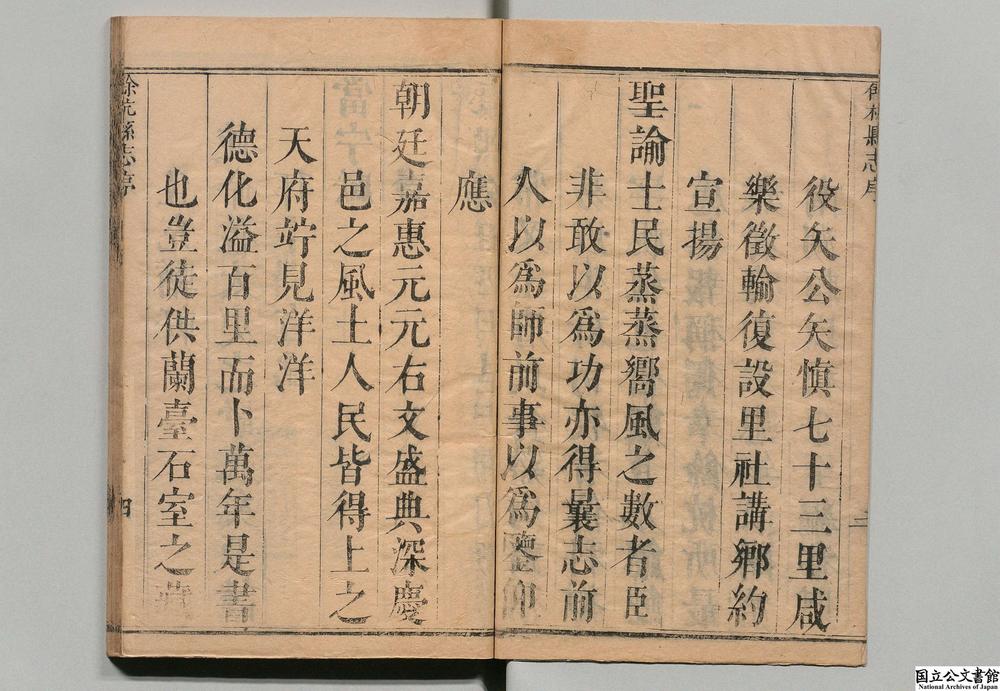 役矢公矢慎七十三里咸
樂徵輸復設里社講鄉約
宣揚
聖諭士民蒸蒸嚮風之數者臣
非敢以爲功亦得曩志前
人以爲師前事以爲鑒仰
應
朝廷嘉惠元元右文盛典深慶
邑之風土人民皆得上之
天府竚見洋洋
德化溢百里而卜萬年是書
也豈徒供蘭臺石室之藏
餘杭縣志序
四
国立公文書館
National Archives of Japan